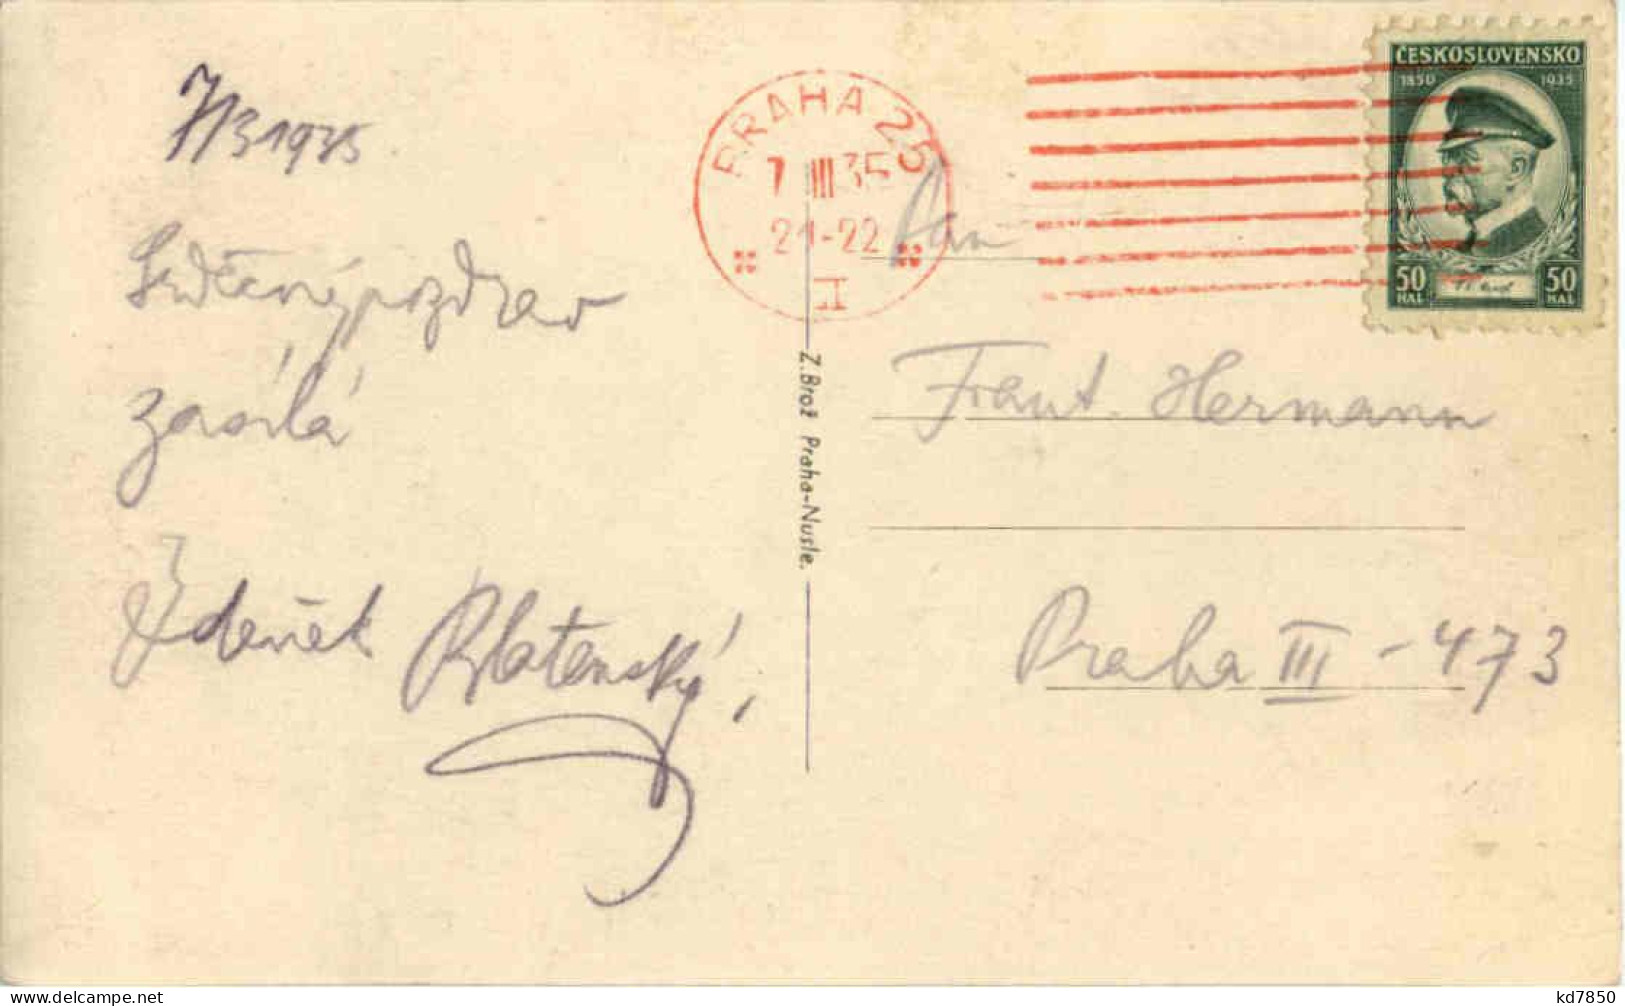 7/3 1935
Srdečný pozdrav
zasílá
Zdeněk
PRAHA 25
7 III 35
21-22
I
Z. Brož Praha-Nusle.
ČESKOSLOVENSKO
1850 1935
50 50
HAL HAL
Pan
Frant. Hermann
Praha III - 473
kd7850